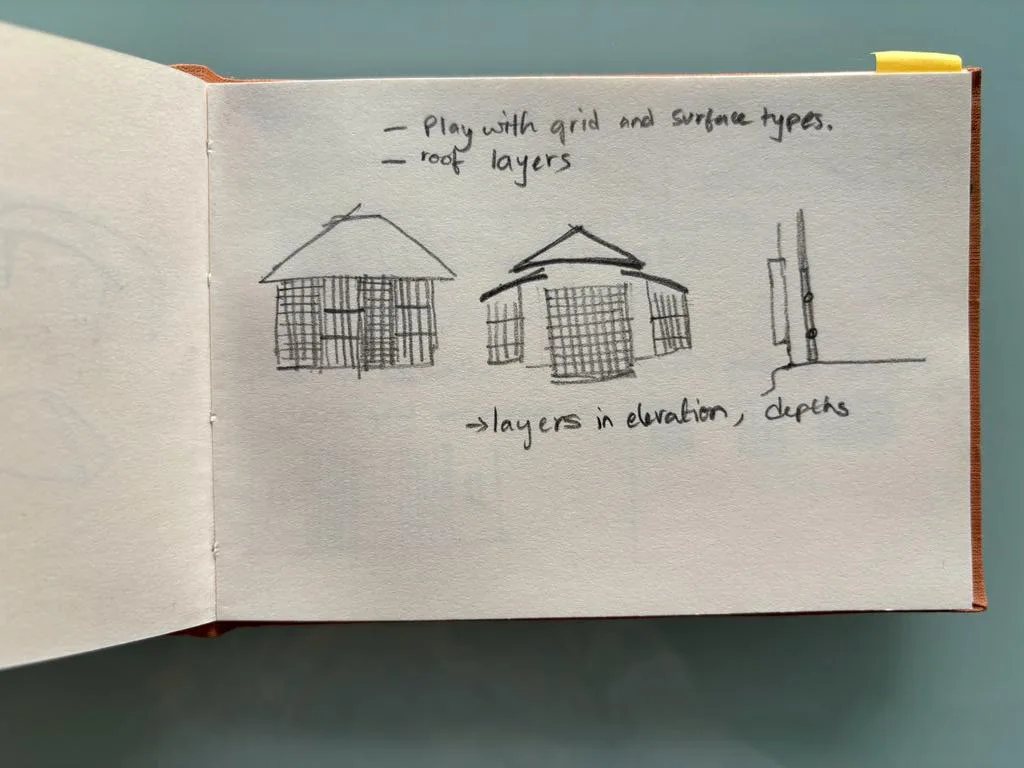 — Play with grid and surface types.
— roof layers
→ layers in elevation, depths